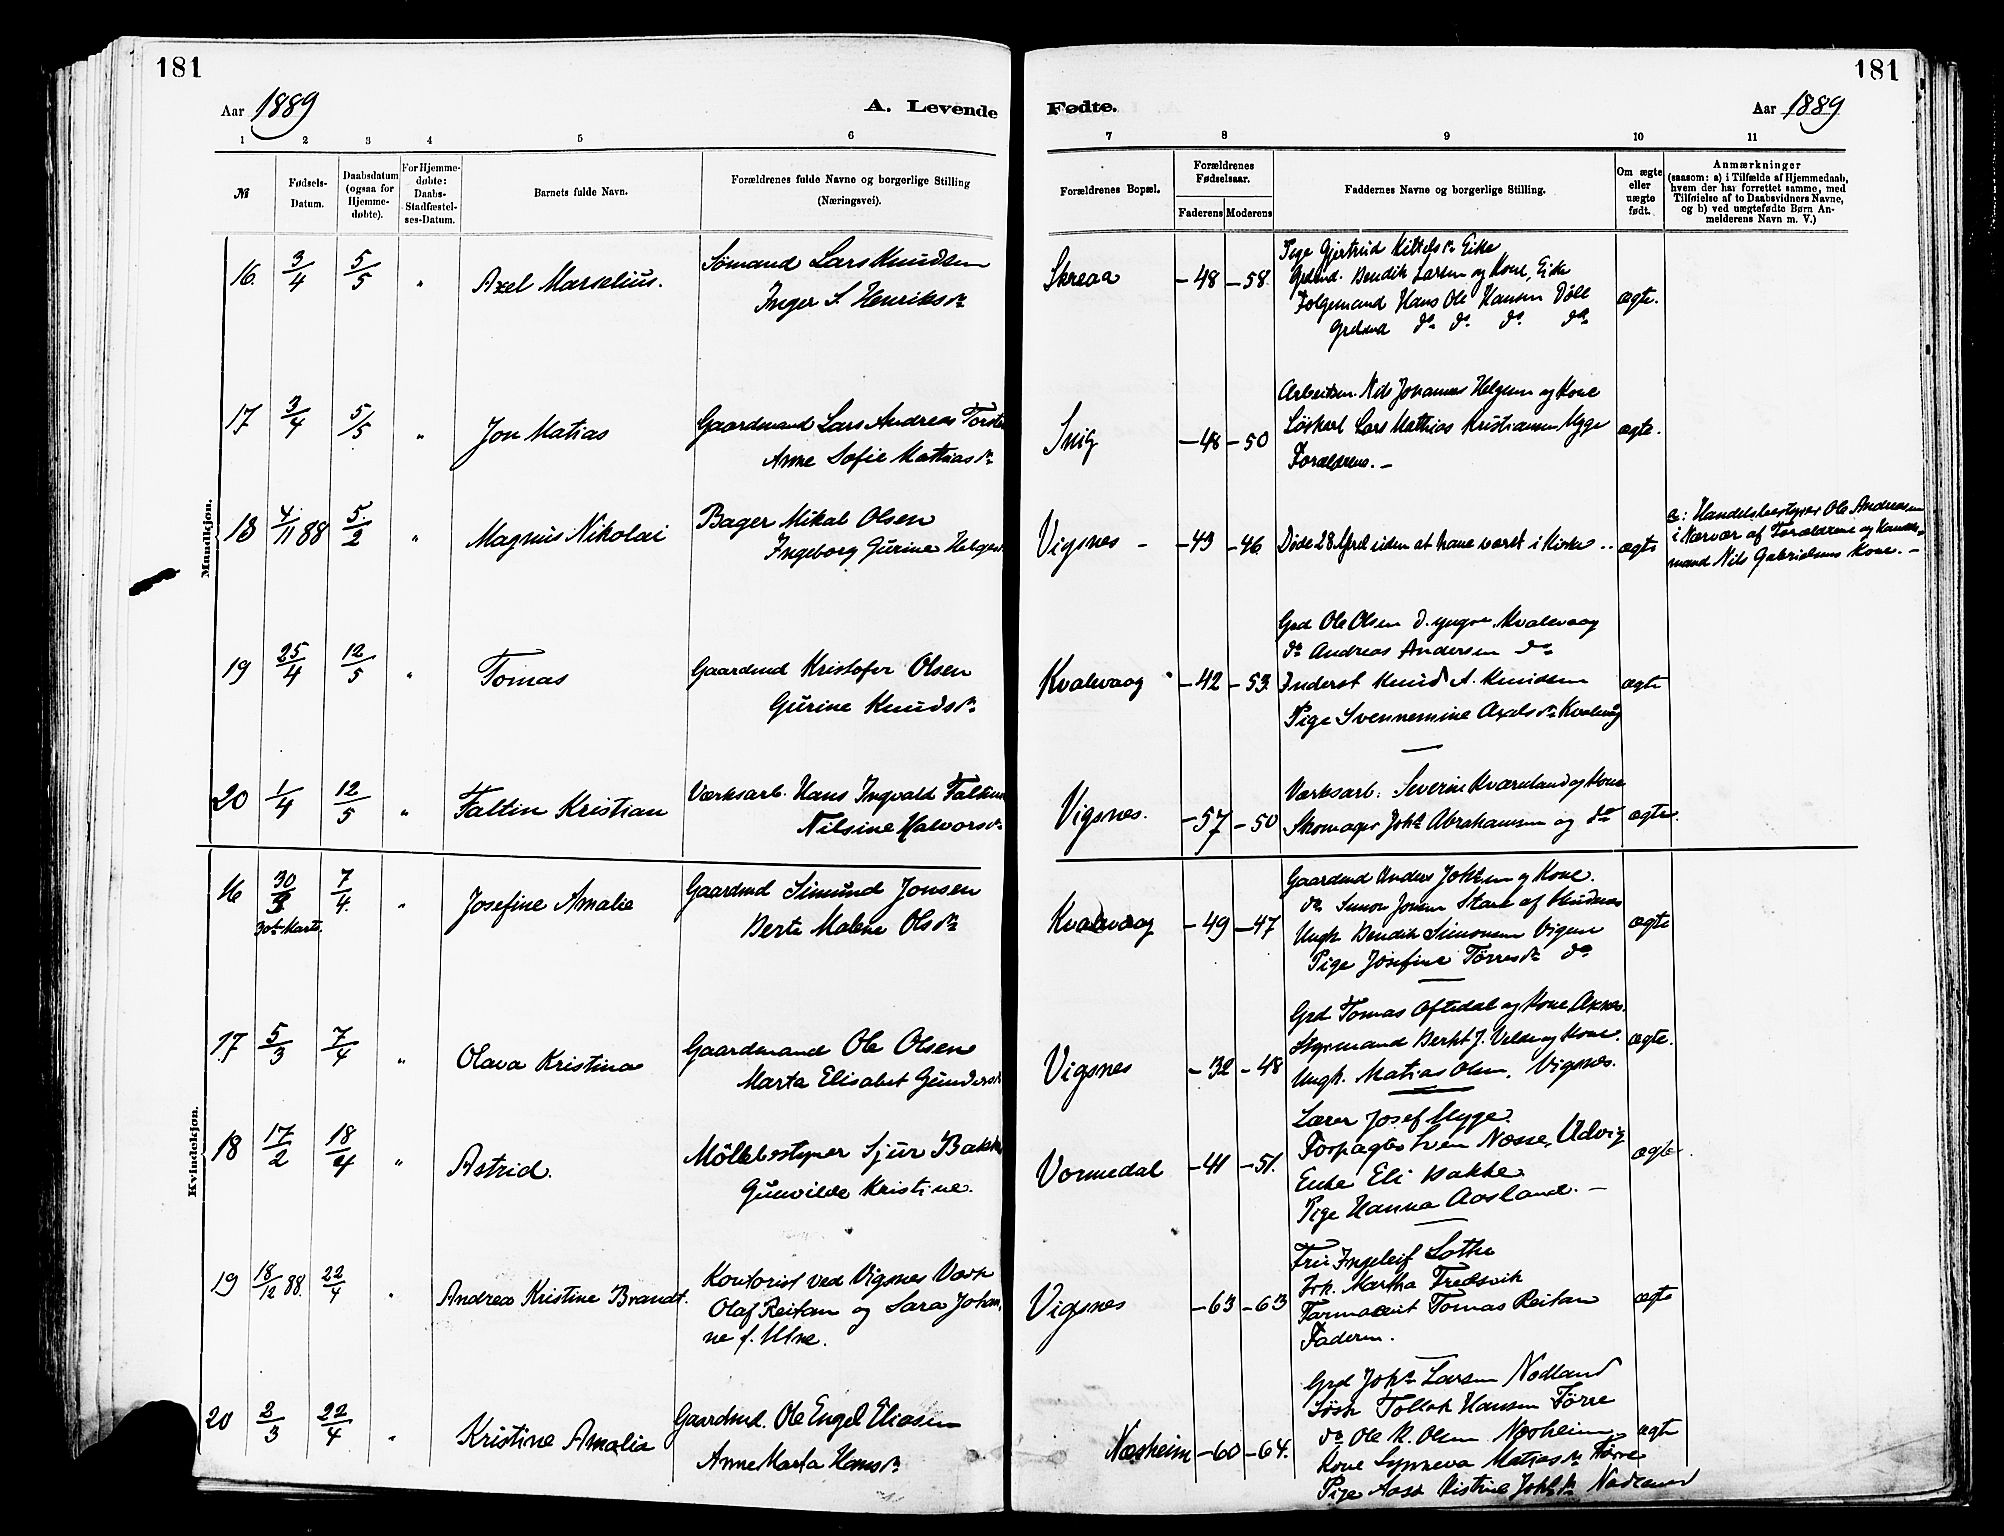 181
181
Aar 1889
A. Levende
Fødte.
Aar 1889
1 2 3 4 5 6
7 8 9 10 11
№
Fødsels-
Datum.
Daabsdatum
(ogsaa for
Hjemme-
døbte).
For Hjemme-
døbte:
Daabs-
Stadfæstel-
ses-Datum.
Barnets fulde Navn.
Forældrenes fulde Navne og borgerlige Stilling
(Næringsvei).
Forældrenes Bopæl.
Forældrenes
Fødselsaar.
Faderens Moderens
Faddernes Navne og borgerlige Stilling.
Om ægte
eller
uægte
født.
Anmærkninger
(saasom: a) i Tilfælde af Hjemmedaab,
hvem der har forrettet samme, med
Tilføielse af to Daabsvidners Navne,
og b) ved uægtefødte Børn An-
melderens Navn m. V.)
Mandkjøn.
16. 3/4 5/5 " Axel Marselius.
Sømand Lars Knudsen
Inger S. Henriksdr
Skreaa -48 -58.
Pige Gjertrud Kittelsdr Eike
Grdmd. Bendik Larsen og Kone, Eike
Folgemand Hans Ole Hansen Döle
Grdmd do do do do
ægte.
17 3/4 5/5 " Jon Matias
Gaardmand Lars Andreas Torste
Anne Sofie Mathiasdr
Snig -48 -50
Arbeidsm. Nils Johannes Helgesen og Kone
Löskarl Lars Mathias Kristiansen Myge
Forældrene. -
ægte.
18 4/11 88 5/2 " Magnus Nikolai
Bager Mikal Olsen
Ingeborg Gurine Helges
Vigsnes - -43 -46
Døde 28 April uden at have været i Kirke ..
ægte
a: Handelsbestyrer Ole Andreasen
i Nærvær af Forældrene og
mand Nils Gabrielsens Kone. -
19 25/4 12/5 " Tomas
Gaardmd Kristofer Olsen
Gurine Knudsdr
Kvalevaag -42 -53.
Grd Ole Olsen d. yngre, Kvalevaag
do Andreas Andersen do
Inderst Knud A. Knudsen
Pige Svennemine Axelsdr Kvalevåg
ægte
20 1/4 12/5 " Faltin Kristian
Værksarb. Hans Ingvald Faltins
Nilsine Halvorsdr
Vigsnes. -57 -50
Værksarb. Severin Kværneland og Kone
Skomager Johs Abrahamsen og do
ægte.
Kvindekjøn.
16 30/3 7/4. " Josefine Amalie
30te Marts.
Gaardmd Simund Jonsen
Berte Malene Olsdr
Kvalevaag -49 -47
Gaardmd Anders Johnsen og Kone.
do Simon Jonsen Stave af Skudenes
Ungk. Bendik Simonsen Vigsnes
Pige Josefine Tørresdr do
ægte
17 5/3 7/4 " Olava Kristina
Gaardmand Ole Olsen
Marta Elisabet Gundersdr
Vigsnes -32 -48
Grd Tomas Oftedal og Kone Aknes.
Styrmand Berht J. Velde og Kone.
Ungk. Matias Olsen, Vigsnes.
ægte.
18 17/2 18/4 " Astrid.
Möllebestyrer Sjur Bakke
Gunvilde Kristine.
Vormedal -41 -51.
Lærer Josef Mygge.
Forpagter Sven Nesse, Udvig
Enke Eli Bakke
Pige Hanna Aasland. -
ægte
19 18/12 88. 22/4 " Andrea Kristine Brandt.
Kontorist ved Vigsnes Værk
Olaf Reitan og Sara Johan,
ne f. Ulve.
Vigsnes -63 -63
Fru Ingeleif Lothe
Frk. Martha Fredsvik
Farmaceut Tomas Reitan
Faderen.
ægte
20 2/3 22/4 " Kristine Amalia
Gaardmd. Ole Engel Eliasen
Anne Marta Hansdr
Næsheim -60 -64.
Grd Johs Larsen Nodland
Løsk Tollak Hansen Førre
do Ole K. Olsen Næsheim
Kone Synneva Matiasdr Førre
Pige Aasa Kistine Johsdr Nodland
ægte